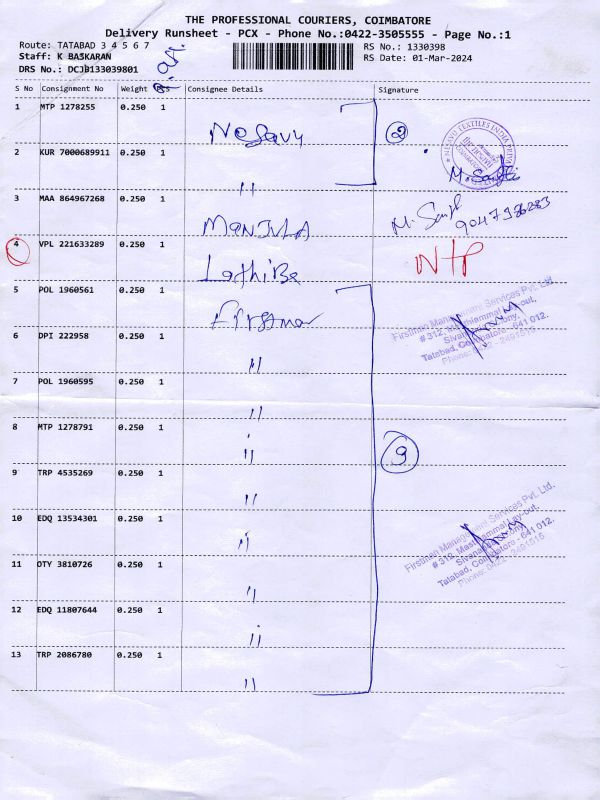 THE PROFESSIONAL COURIERS, COIMBATORE
Delivery Runsheet - PCX - Phone No.:0422-3505555 - Page No.:1
Route: TATABAD 3 4 5 6 7
RS No.: 1330398
Staff: K BASKARAN
RS Date: 01-Mar-2024
DRS No.: DCJB133039801
S No Consignment No Weight Consignee Details Signature
1 MTP 1278255 0.250 1 Nesavu 2
2 KUR 7000689911 0.250 1 " M. Santhi
3 MAA 864967268 0.250 1 MANJULA
4 VPL 221633289 0.250 1 Lathika NTP
5 POL 1960561 0.250 1 Firstman
Firstman Management Services Pvt. Ltd.
# 312, Masthiammal Lay-out,
Sivananda Colony,
Tatabad, Coimbatore - 641 012.
Phone: 0422 - 2491515
6 DPI 222958 0.250 1 "
7 POL 1960595 0.250 1 "
8 MTP 1278791 0.250 1 " 9
9 TRP 4535269 0.250 1 "
10 EDQ 13534301 0.250 1 "
Firstman Management Services Pvt. Ltd.
# 312, Masthiammal Lay-out,
Sivananda Colony,
Tatabad, Coimbatore - 641 012.
Phone: 0422 - 2491515
11 OTY 3810726 0.250 1 "
12 EDQ 11807644 0.250 1 "
13 TRP 2086780 0.250 1 "